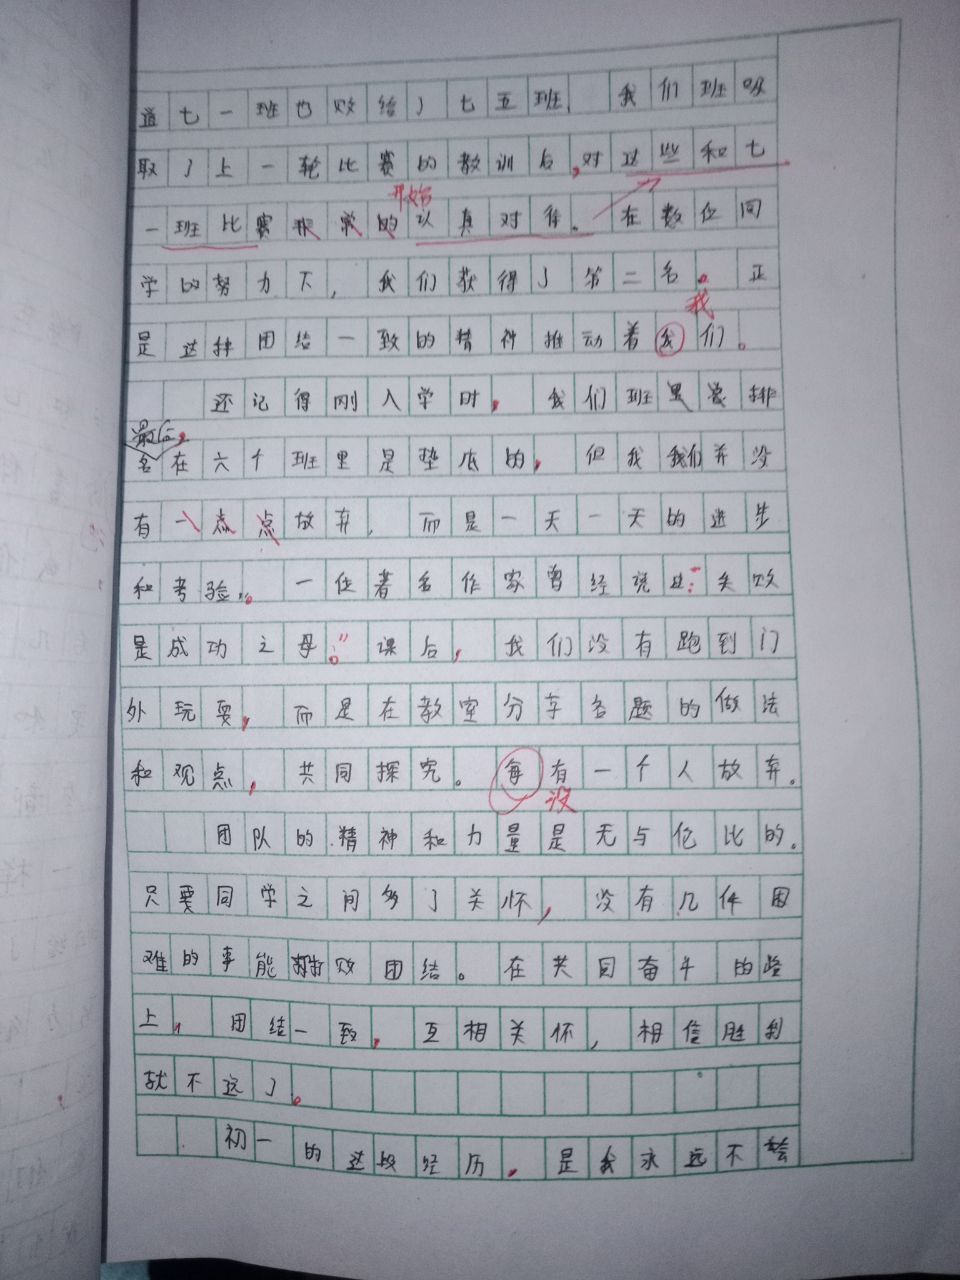 道七一班也败给了七五班, 我们班吸
取了上一轮比赛的教训后,对这些和七
开始
一班比赛非常的认真对待。在数位同
学的努力下,我们获得了第二名。正
我
是这种团结一致的精神推动着我们。
还记得刚入学时,我们班里总排
最后,
名在六个班里是垫底的,但我我们并没
有一点点放弃,而是一天一天的进步
和考验。一位著名作家曾经说过:“失败
是成功之母。”课后,我们没有跑到门
外玩耍,而是在教室分享各题的做法
和观点,共同探究。每有一个人放弃。
没
团队的精神和力量是无与伦比的。
只要同学之间多了关怀,没有几件困
难的事能打败团结。在共同奋斗的路
上,团结一致,互相关怀,相信胜利
就不远了。
初一的这段经历,是我永远不会